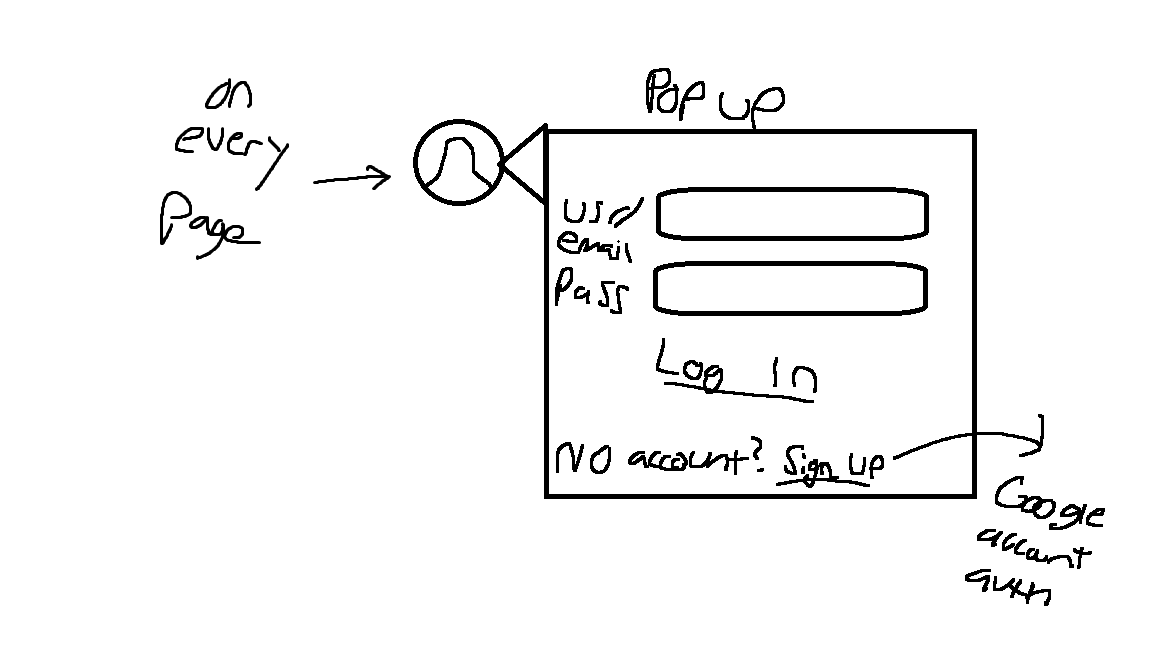 on
every
Page
Pop up
usr/
email
Pass
Log in
No account? Sign up
Google
account
auth